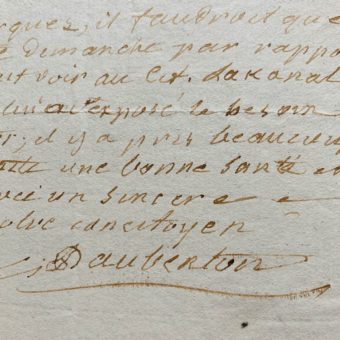 rquez, il faudroit que
e dimanche par rappo
oit voir au Cit. Lakanal
exposé le besoin
il y a pris beaucou
une bonne santé e
un sincere
concitoyen
Daubenton